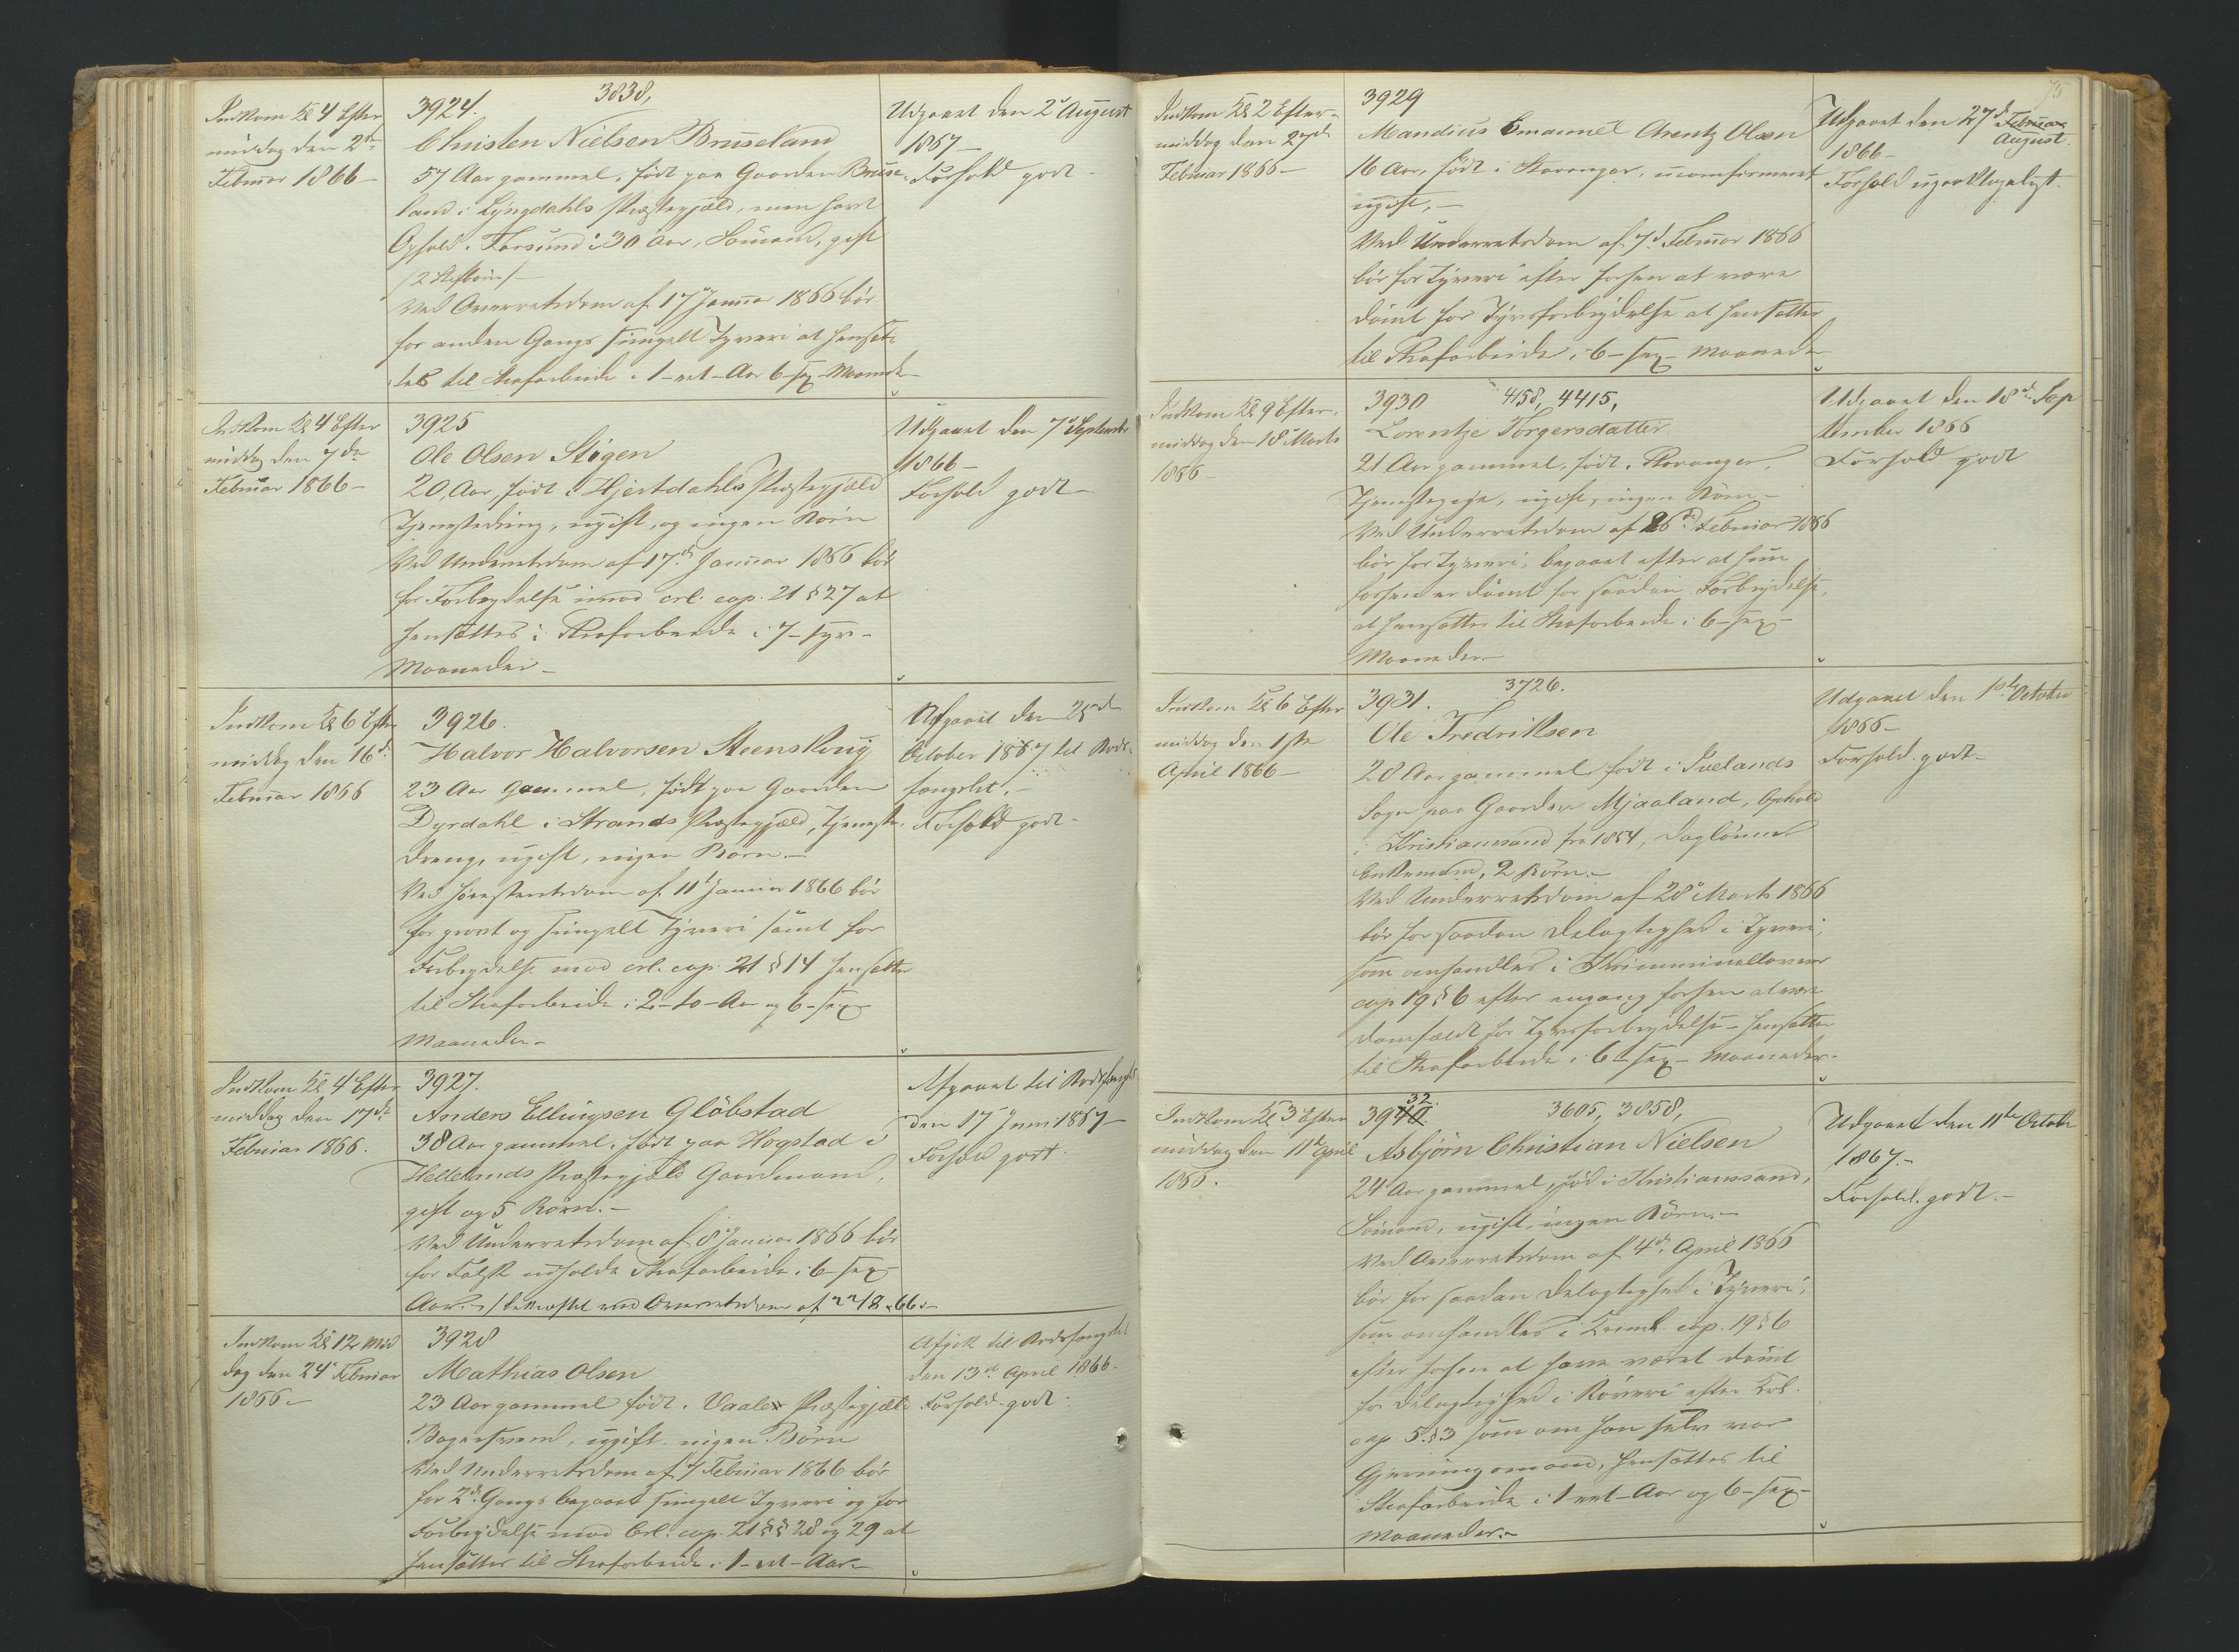 Indkom Kl 4 Efter
middag den 2den
Februar 1866 –
3924. 3838,
Christen Nielsen Bruseland
57 Aar gammel, født paa Gaarden Bruse-
land i Lyngdahls Præstegjæld, men havt
Ophold i Farsund i 30 Aar, Sömand, gift
/2 Stifbørn/ –
Ved Overretsdom af 17 Januar 1866 bör
for anden Gangs simpelt Tyveri at hensæt-
tes til Strafarbeide i 1 – eet – Aar 6 – sex – Maaneder
Udgaaet den 2d August
1867 –
Forhold godt –
Indkom Kl 4 Efter
middag den 7de
Februar 1866 –
3925
Ole Olsen Stigen
20, Aar, født i Hjertdahls Præstegjæld
Tjenestedreng, ugift, og ingen Börn
Ved Underretsdom af 17d Januar 1866 bör
for Forbrydelse imod crl. cap. 21 § 27 at
hensættes i Strafarbeide i 7 – syv –
Maaneder –
Udgaaet den 7d September
1866 –
Forhold godt –
Indkom Kl 6 Efter
middag den 16d
Februar 1866
3926.
Halvor Halvorsen Steenskoug
23 Aar gammel, født paa Gaarden
Dyrdahl i Strands Præstegjæld, Tjeneste-
dreng, ugift, ingen Børn. –
Ved Høiesteretsdom af 11d Januar 1866 bör
for grovt og simpelt Tyveri samt for
Forbrydelse mod crl. cap. 21 § 14 hensættes
til Strafarbeide i 2 – to – Aar og 6 – sex
Maaneder –
Afgaaet den 25d
October 1867 til Bods-
fængslet. –
Forhold godt –
Indkom Kl 4 Efter
middag den 17de
Februar 1866.
3927.
Anders Ellingsen Glöbstad
38 Aar gammel, født paa Hogstad i
Hellelands Præstegjæld Gaardmand,
gift og 5 Börn. –
Ved Underretsdom af 8 Januar 1866 bör
for Falsk udholde Strafarbeide i 6 – sex –
Aar. – /bekræftet ved Overretsdom af 22/8 66. –
Afgaaet til Bodsfængslet
den 17 Juni 1867 –
Forhold godt.
Indkom Kl 12 Mid
dag den 24d Februar
1866 –
3928
Mathias Olsen
23 Aar gammel født i Vaaler Præstegjæld
Bagersvend, ugift. ingen Børn
Ved Underretsdom af 7 Februar 1866 bör
for 2d Gangs begaaet simpelt Tyveri og for
Forbrydelse mod Crl. cap. 21 §§ 28 og 29 at
hensættes til Strafarbeide i 1 – et – Aar. –
Afgik til Bodsfængslet
den 13d April 1866 –
Forhold godt –
75
Indkom Kl 2 Efter-
middag den 27d
Februar 1866 –
3929
Mandius Emanuel Arentz Olsen
16 Aar, født i Stavanger, uconfirmeret
ugift. –
Ved Underretsdom af 7d Februar 1866
bör for Tyveri efter forhen at være
dömt for Tyvsforbrydelse at hensættes
til Strafarbeide i 6 – sex – Maaneder
Udgaaet den 27d Februar
August.
1866 –
Forhold upaaklageligt.
Indkom Kl 9 Efter-
middag den 18d Marts
1866 –
3930 4158, 4415,
Lorentze Torgersdatter
21 Aar gammel, født i Stavanger,
Tjenestepige, ugift, ingen Börn –
Ved Underretsdom af 26d Februar 1866
bör for Tyveri, begaaet efter at hun
forhen er dömt for saadan Forbrydelse,
at hensættes til Strafarbeide i 6 – sex –
Maaneder –
Udgaaet den 18d Sep
tember 1866
Forhold godt
Indkom Kl 6 Efter
middag den 1ste
April 1866 –
3931. 3726.
Ole Fredriksen
28 Aar gammel født i Ivelands
Sogn paa Gaarden Mjaaland, Ophold
i Kristianssand fra 1854, Daglönner
Enkemand, 2 Börn. –
Ved Underretsdom af 28d Marts 1866
bör for saadan Delagtighed i Tyveri,
som omhandles i Kriminalloven
cap 19 § 6 efter engang forhen at være
domfældt for Tyvsforbrydelse – hensættes
til Strafarbeide i 6 – sex – Maaneder –
Udgaaet den 1ste October
1866 –
Forhold godt –
Indkom Kl 3 Efter
middag den 11te April
1866.
3940. 32. 3605, 3858,
Asbjørn Christian Nielsen
24 Aar gammel, född i Kristianssand,
Sömand, ugift, ingen Börn. –
Ved Overretsdom af 4de April 1866
bör for saadan Delagtighed i Tyveri,
som omhandles i Criml. cap. 19 § 6
efter forhen at have været dömt
for Delagtighed i Röveri efter Crl.
cap. 5 § 3 som om han selv var
Gjerningsmand, hensættes til
Strafarbeide i 1 – eet – Aar og 6 – sex –
Maaneder. –
Udgaaet den 11te October
1867. –
Forhold godt. –